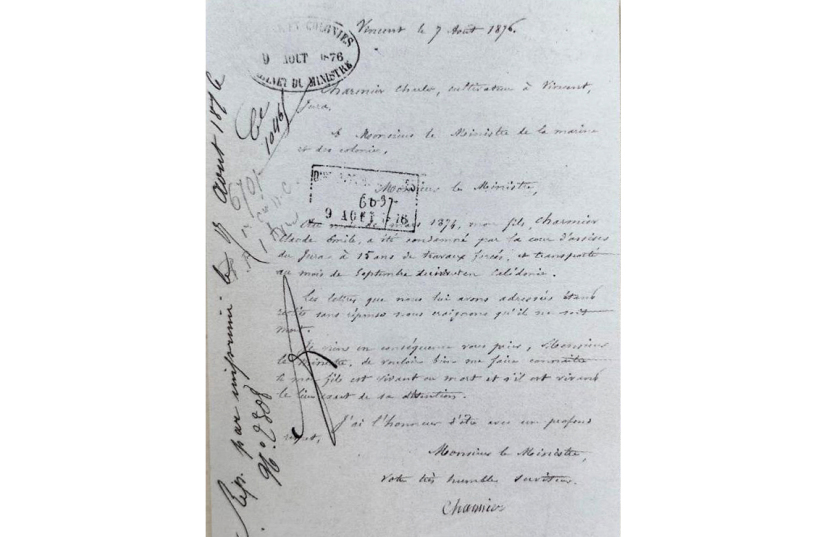 Vincent le 7 Août 1876.
9 AOUT 1876
CABINET DU MINISTRE
Charmier Charles, cultivateur à Vincent,
Jura,
A Monsieur le Ministre de la marine
et des colonies,
Monsieur le Ministre,
9 AOUT 76
Au mois de mars 1874, mon fils, Charmier
Claude Emile, a été condamné par la cour d'assises
du Jura à 15 ans de travaux forcés, et transporté
au mois de Septembre en Calédonie.
Les lettres que nous lui avons adressées étant
sans réponse nous craignons qu'il ne soit
mort.
Je viens en conséquence vous prier, Monsieur
le Ministre, de vouloir bien me faire connaître
si mon fils est vivant ou mort et s'il est vivant
le lieu exact de sa détention.
J'ai l'honneur d'être avec un profond
respect,
Monsieur le Ministre,
votre très humble serviteur.
Charmier
Rép. par imprimé le août 1876